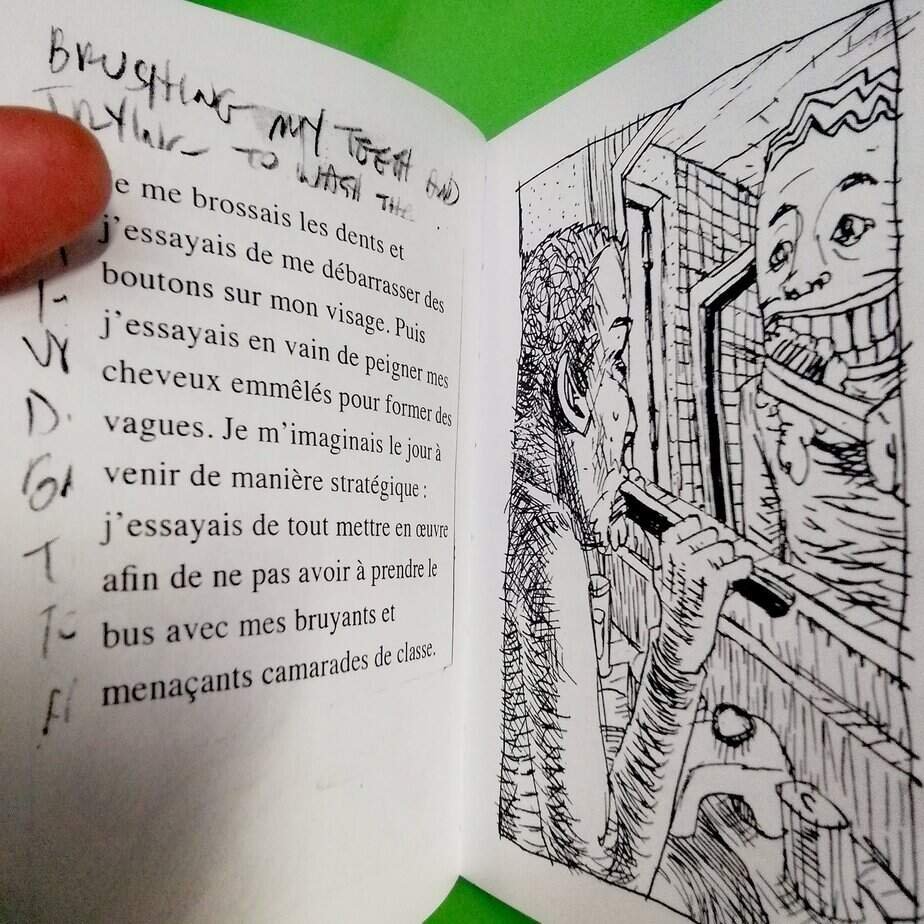 BRUSHING MY TEETH AND
TRYING TO WASH THE
Je me brossais les dents et
j'essayais de me débarrasser des
boutons sur mon visage. Puis
j'essayais en vain de peigner mes
cheveux emmêlés pour former des
vagues. Je m'imaginais le jour à
venir de manière stratégique :
j'essayais de tout mettre en œuvre
afin de ne pas avoir à prendre le
bus avec mes bruyants et
menaçants camarades de classe.